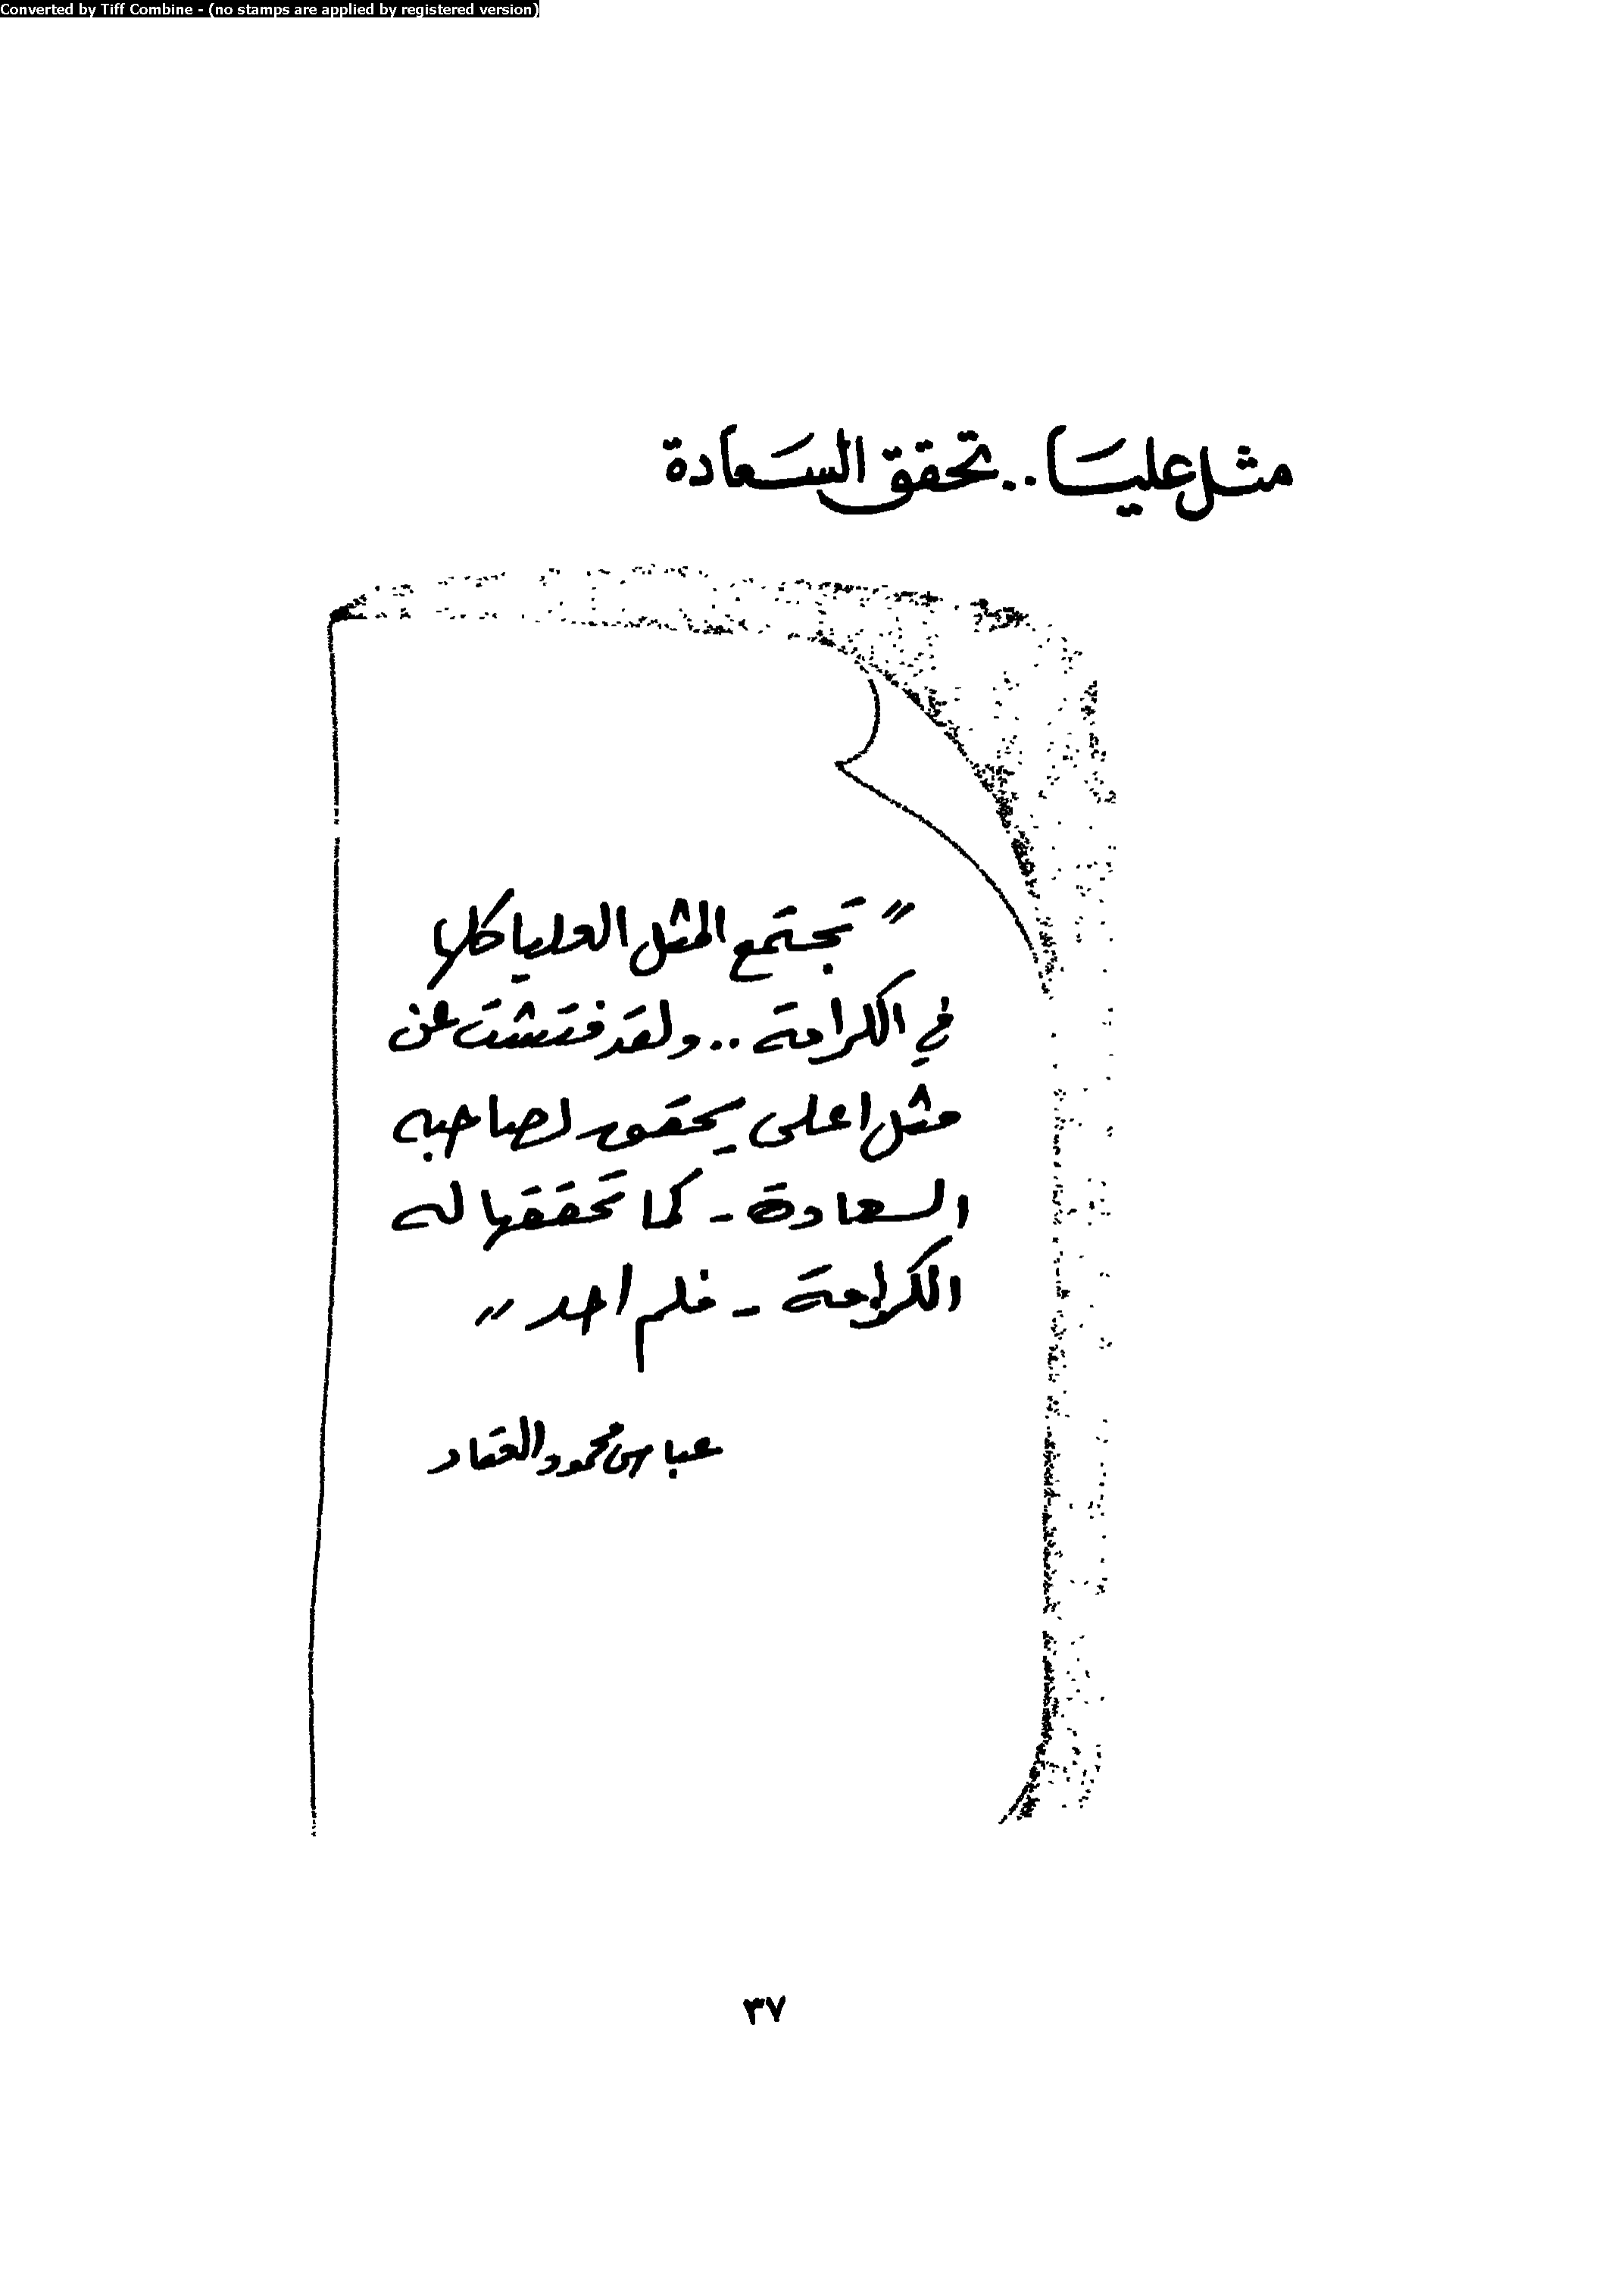 Converted by Tiff Combine - (no stamps are applied by registered version)
مثل عليا .. تحقق السعادة
" تجتمع المثل العليا كلها
في الكرامة .. ولقد فتشت عن
مثل اعلى يحقق لصاحبه
السعادة - كما تحققها له
الكرامة - فلم اجد "
عباس محمود العقاد
٣٧